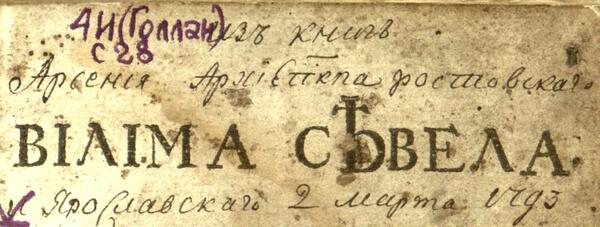 4И(Голлан)
С28
изъ книгъ
Арсенія Архіепкпа ростовскаго
ВІЛІМА СѢВЕЛА.
и Ярославскаго 2 марта 1793